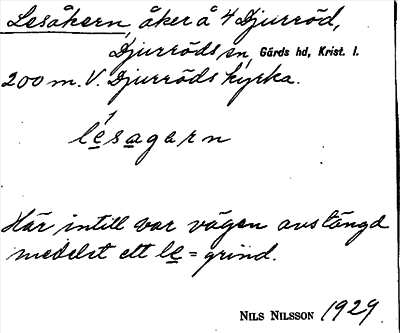 Lesåkern, åker å 4 Djurröd,
Djurröds sn, Gärds hd, Krist. l.
200 m. V. Djurröds kyrka.
lesagarn
Här intill var vägen avstängd
medelst ett le = grind.
NILS NILSSON 1929